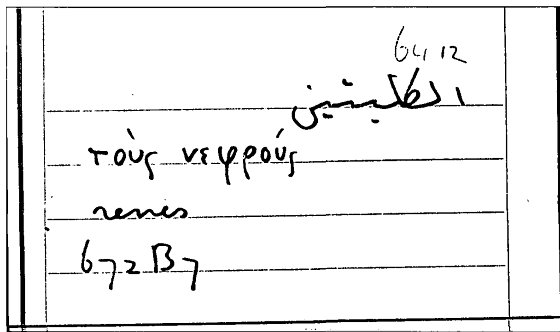 64 12
الكليتين
τοὺς νεφρούς
renes
672 B7